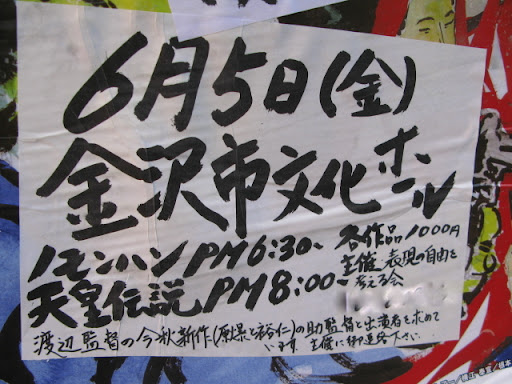 6月5日(金)
金沢市文化ホール
ノモンハンPM6:30〜
天皇伝説PM8:00〜
各作品1000円
主催 表現の自由を
考える会
渡辺監督の今秋新作(原爆と裕仁)の助監督と出演者を求めて
います。主催に御連絡下さい。